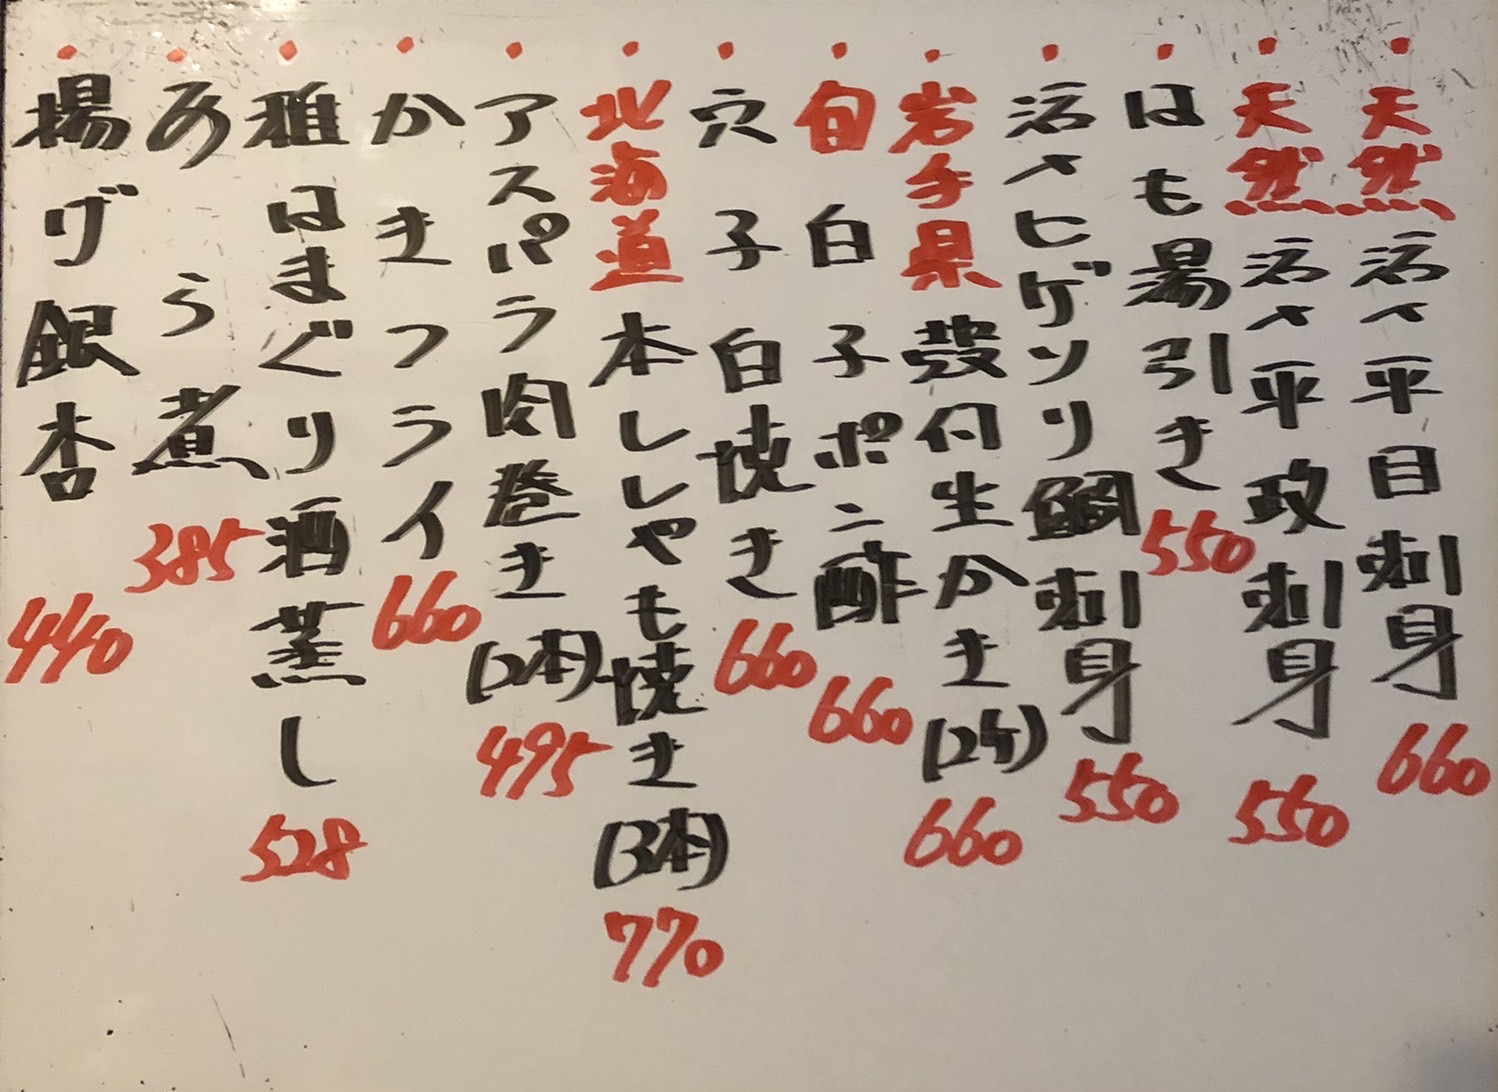 ・天然活〆平目刺身 660
・天然活〆平政刺身 550
・はも湯引き 550
・活〆ヒゲソリ鯛刺身 550
・岩手県殻付生かき(2ケ) 660
・旬白子ポン酢 660
・穴子白焼き 660
・北海道本ししゃも焼き(3本) 770
・アスパラ肉巻き(2本) 495
・かきフライ 660
・雅はまぐり酒蒸し 528
・あら煮 385
・揚げ銀杏 440